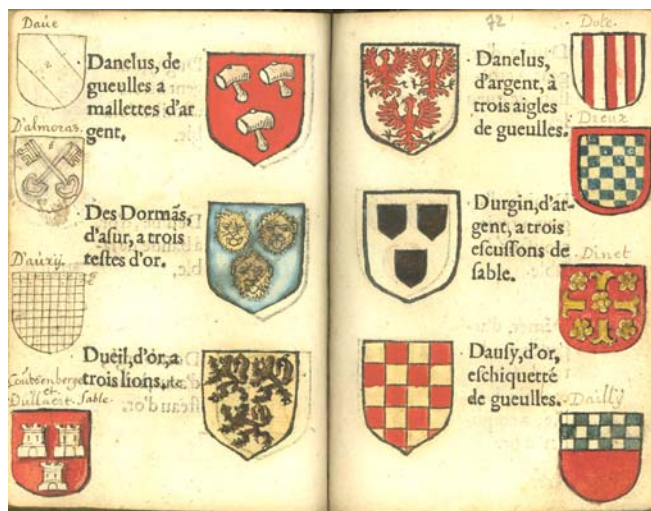 Daûe
Danelus, de
gueulles a
mallettes d'ar
gent,
D'almoras.
Des Dormãs,
d'asur, a trois
testes d'or.
D'aurij.
Duëil, d'ór, a
trois lions,
et
Dullaert Sable.
72
Danelus,
d'argent, à
trois aigles
de gueulles.
Dote.
Dreux
Durgin, d'ar-
gent, a trois
escussons de
sable.
Dinet
Dausy, d'or,
eschiquetté
de gueulles.
Dailly